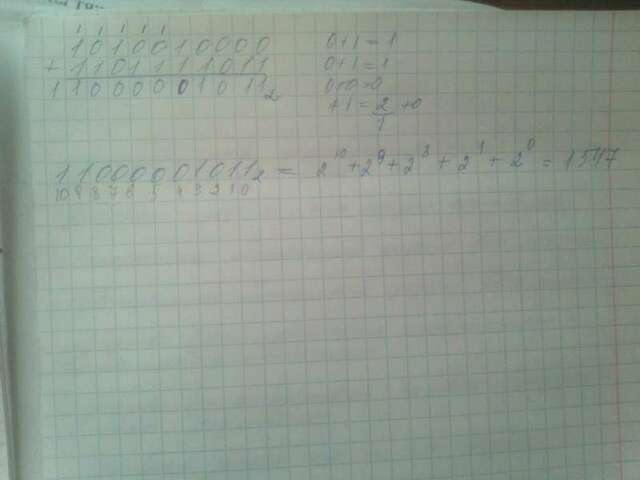 1 1 1 1 1
1010010000 0+1=1
+ 1101111011 0+1=1
11000001011₂ 0+0=0
+1=2/1 +0
11000001011₂ = 2¹⁰+2⁹+2³+2¹+2⁰=1547
10 9 8 7 6 5 4 3 2 1 0